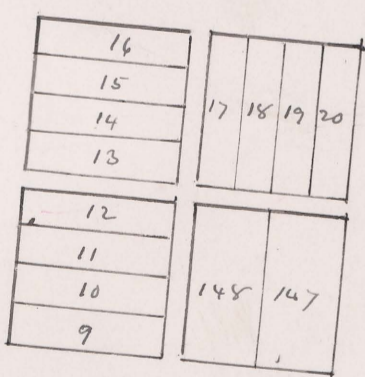 16
15
14
13
17 18 19 20
12
11
10
9
148 147